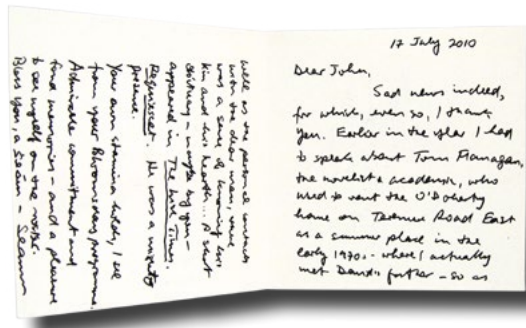 17 July 2010
Dear John,
Sad news indeed,
for which, even so, I thank
you. Earlier in the year I had
to speak about Tom Flanagan,
the novelist & academic, who
used to rent the O'Doherty
home on Tarmon Road East
as a summer place in the
early 1970s – where I actually
met David's father – so as
well as the personal contacts
with the dear man, there
was a sense of knowing his
kin and his hearth...
obituary – by you –
appeared in The Irish Times.
Requiescat. He was a mighty
presence.
Your own stamina holds, I see
from your Bloomsday programme.
Admirable commitment and
fond memories – and a pleasure
to see myself on the roster.
Bless you, a Seáin – Seamus